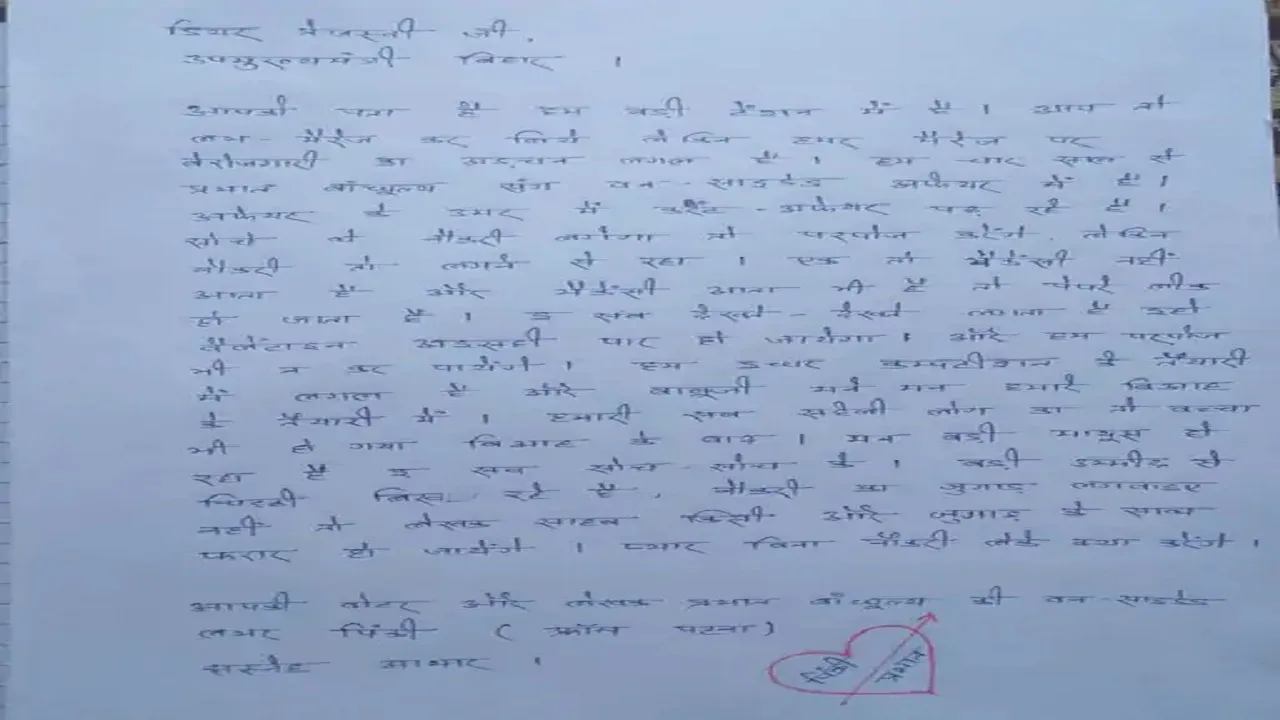 डियर तेजस्वी जी,
उपमुख्यमंत्री बिहार ।
आपको पता है हम बड़ी टेंशन में है । आप तो
लभ-मैरेज कर लिये लेकिन हमर मैरेज पर
बेरोजगारी का अड़चन लगल है । हम चार साल से
प्रभात बांधुल्य संग वन-साइडेड अफेयर में है ।
अफेयर के उमर में करेंट-अफेयर पढ़ रहे है ।
सोचे थे नौकरी लगेगा तो परपोज करेंगे, लेकिन
नौकरी तो लगने से रहा । एक तो वैकेंसी नहीं
आता है और वैकेंसी आता भी है तो पेपरे लीक
हो जाता है । इ सब देखते-देखते लगता है इहो
वैलेंटाइन अइसही पार हो जायेगा । और हम परपोज
भी न कर पायेंगे । हम इधर कम्पटीशन के तैयारी
में लगल है और बाबूजी मने मन हमारे बिआह
के तैयारी में । हमारी सब सहेली लोग का तो बच्चा
भी हो गया बिआह के बाद । मन बड़ी मायूस हो
रहा है इ सब सोच-सोच के । बड़ी उम्मीद से
चिट्ठी लिख रहे है, नौकरी का जुगाड़ लगवाइए
नहीं तो लेखक साहब किसी और जुगाड़ के साथ
फरार हो जायेंगे । प्यार बिना नौकरी लेके क्या करेंगे ।
आपकी वोटर और लेखक प्रभात बांधुल्य की वन-साइडेड
लभर पिंकी (फ्रॉम पटना)
सस्नेह आभार ।
पिंकी प्रभात